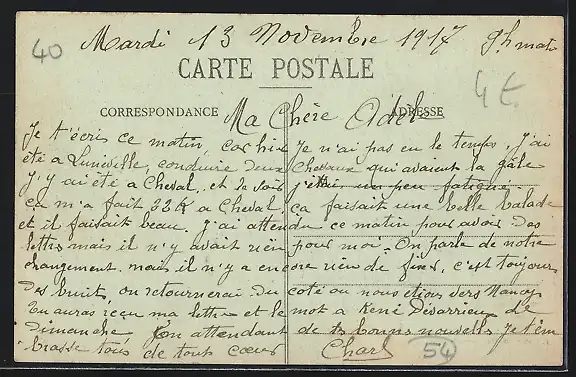 40
Mardi 13 Novembre 1917 9h mat
CARTE POSTALE
4 E
CORRESPONDANCE
ADRESSE
Ma Chère Adèle
Je t'écris ce matin, car hier Je n'ai pas eu le temps, J'ai
été a Luneville, conduire deux chevaux qui avaient la gâle
J'y ai été a cheval, et le soir j'étais un peu fatigué
ça m'a fait 22K a cheval, ça faisait une belle balade
et il faisait beau. J'ai attendu ce matin pour avoir des
lettres mais il n'y avait rien pour moi. On parle de notre
changement, mais il n'y a encore rien de fixe, c'est toujours
des bruits, on retournerai du coté ou nous étions vers Nancy
tu auras reçu ma lettre et le mot a René Désarrieu de
dimanche J'en attendant de tes bonnes nouvelles je t'em
brasse tous de tout cœur Charl
54